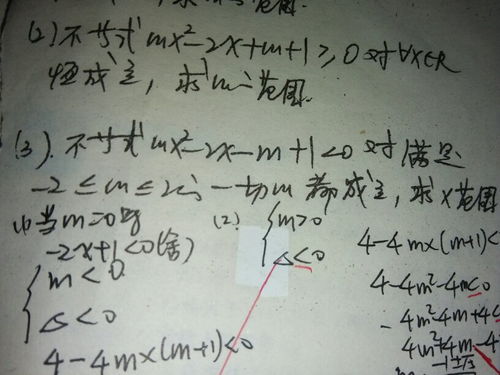 求m范围.
(2)不等式mx²-2x+m+1≥0对∀x∈R
恒成立,求m范围.
(3).不等式mx²-2x-m+1<0对满足
-2≤m≤2的一切m都成立,求x范围
(1)当m=0时
-2x+1<0(舍)
{m<0
△<0
4-4m×(m+1)<0
(2){m>0
△<0
4-4m×(m+1)<
4-4m²-4m<0
-4m²-4m+4<
4m²+4m-4